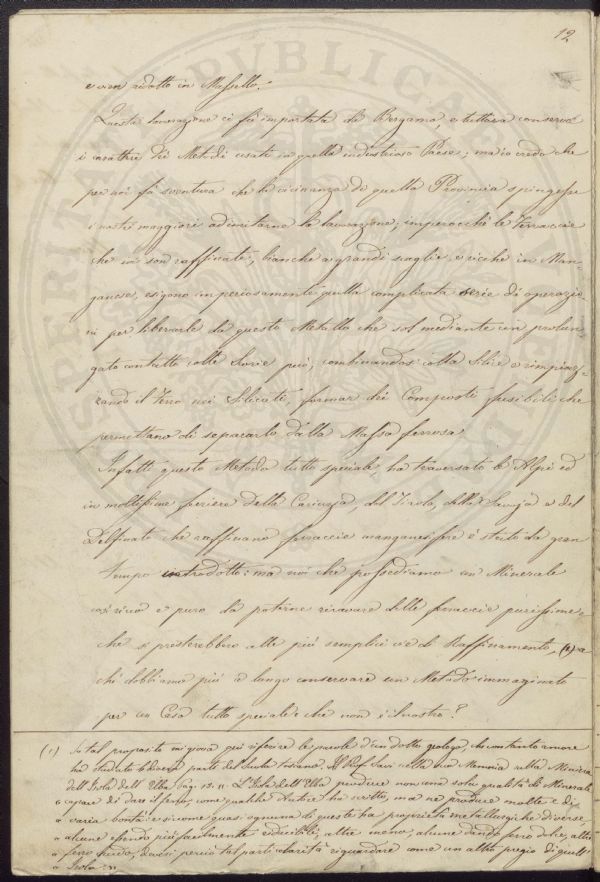 12
e vien ridotto in Massello.
Questa lavorazione ci fù importata da Bergamo, e tuttora conserva
i caratteri dei Metodi usati in quella industrioso Paese; ma io credo che
per noi fù sventura che la vicinanza di quella Provincia spingesse
i nostri maggiori ad imitarne la lavorazione, imperocchè le ferraccie
che ivi son raffinate, bianche a grandi scaglie, e ricche in Man-
ganese, esigono imperiosamente quella complicata serie di operazio-
ni per liberarle da questo Metallo che sol mediante un prolun-
gato contatto colle Scorie può, combinandosi colla Silice e rimpiaz-
zando il ferro nei Silicati, formar dei Composti fusibili che
permettano di separarlo dalla Massa ferrosa.
Infatti questo Metodo tutto speciale, ha traversato le Alpi ed
in moltissime ferriere della Carinzia, del Tirolo, della Savoja e del
Delfinato che raffinano ferraccie manganesifere è stato da gran
tempo introdotto: ma noi che possediamo un Minerale
così ricco e puro da poterne ricavare delle ferraccie purissime,
che si presterebbero alle più semplici vie di Raffinamento, (1) a
chè dobbiamo più a lungo conservare un Metodo immaginato
per un Caso tutto speciale e che non è il nostro?
(1) In tal proposito mi giova quì riferire le parole d'un dotto geologo, che con tanto amore
ha studiato la parte del suolo toscano. Il Prof. Savi nella sua Memoria sulla Miniera
dell'Isola dell'Elba pag. 13. „ L'Isola dell'Elba produce non una sola qualità di Minerale
„ capace di dare il ferro, come qualche Autore ha scritto, ma ne produce molte e di
„ varia bontà: e siccome quasi ognuna di queste ha proprietà metallurgiche diverse,
„ alcune essendo più facilmente riducibili, altre meno, alcune dando ferro dolce, altre
„ ferro crudo, devesi perciò tal particolarità riguardare come un altro pregio di quell'
„ Isola „